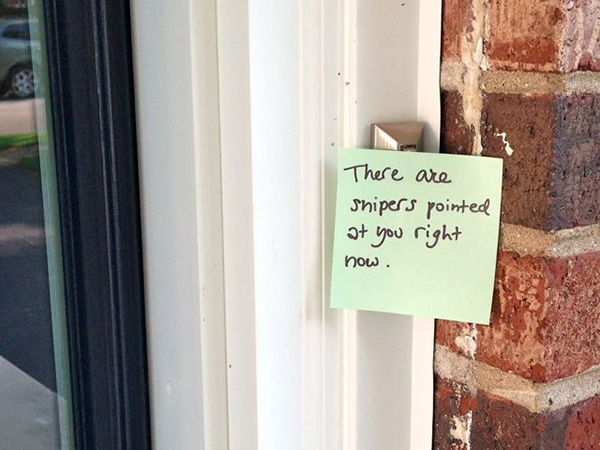 There are
snipers pointed
at you right
now.